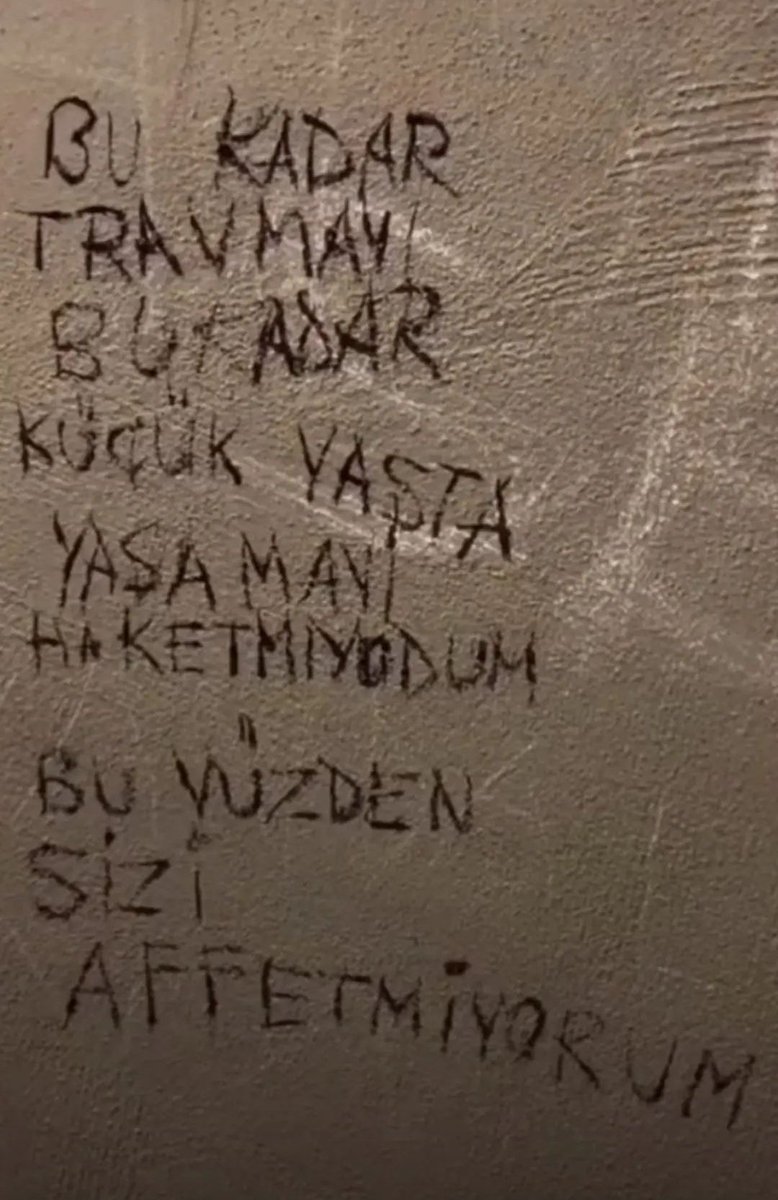 BU KADAR
TRAVMAYI
BU KADAR
KÜÇÜK YAŞTA
YAŞAMAYI
HAKETMIYODUM
BU YÜZDEN
SİZİ
AFFETMİYORUM